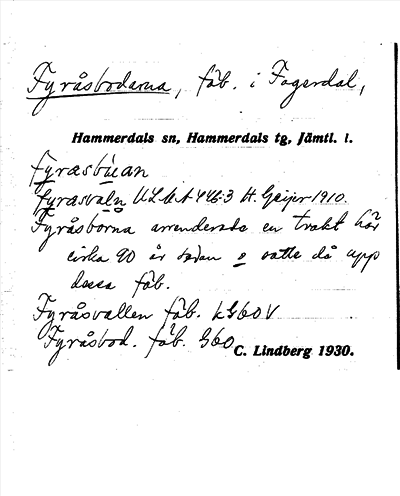 Fyråsbodarna, fäb. i Fagerdal,
Hammerdals sn, Hammerdals tg, Jämtl. l.
fyrasbuan
fyrasvaln ULMA 446:3 H. Geijer 1910.
Fyråsborna arrenderade en trakt här
cirka 90 år sedan o satte då upp
dessa fäb.
Fyråsvallen fäb. LG60V
Fyråsbod. fäb. G60
C. Lindberg 1930.